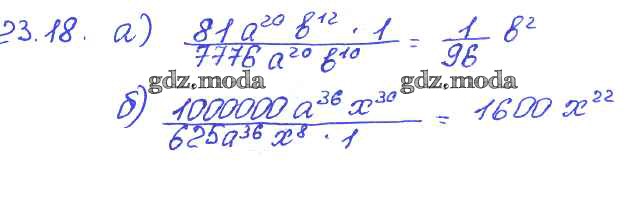 23.18. а) 81 a²⁰ b¹² · 1 / 7776 a²⁰ b¹⁰ = 1/96 b²
gdz.moda gdz.moda
б) 1000000 a³⁶ x³⁰ / 625a³⁶ x⁸ · 1 = 1600 x²²